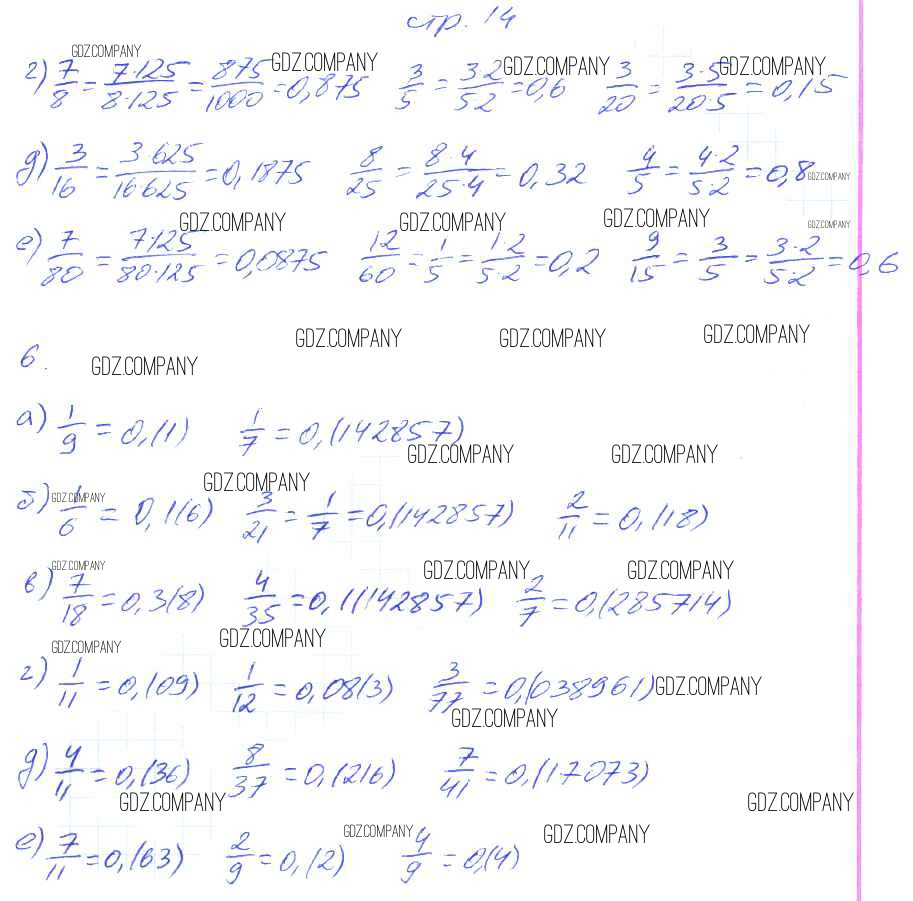 стр. 14
GDZ.COMPANY
г) 7/8 = 7·125/8·125 = 875/1000 = 0,875 3/5 = 3·2/5·2 = 0,6 3/20 = 3·5/20·5 = 0,15
GDZ.COMPANY GDZ.COMPANY GDZ.COMPANY
д) 3/16 = 3·625/16·625 = 0,1875 8/25 = 8·4/25·4 = 0,32 4/5 = 4·2/5·2 = 0,8
GDZ.COMPANY
GDZ.COMPANY GDZ.COMPANY GDZ.COMPANY GDZ.COMPANY
е) 7/80 = 7·125/80·125 = 0,0875 12/60 = 1/5 = 1·2/5·2 = 0,2 9/15 = 3/5 = 3·2/5·2 = 0,6
GDZ.COMPANY GDZ.COMPANY GDZ.COMPANY
6.
GDZ.COMPANY
а) 1/9 = 0,(1) 1/7 = 0,(142857)
GDZ.COMPANY GDZ.COMPANY
GDZ.COMPANY GDZ.COMPANY
б) 1/6 = 0,1(6) 3/21 = 1/7 = 0,(142857) 2/11 = 0,(18)
GDZ.COMPANY GDZ.COMPANY GDZ.COMPANY
в) 7/18 = 0,3(8) 4/35 = 0,1(142857) 2/7 = 0,(285714)
GDZ.COMPANY GDZ.COMPANY
г) 1/11 = 0,(09) 1/12 = 0,08(3) 3/77 = 0,(038961)
GDZ.COMPANY
GDZ.COMPANY
д) 4/11 = 0,(36) 8/37 = 0,(216) 7/41 = 0,(17073)
GDZ.COMPANY GDZ.COMPANY
GDZ.COMPANY GDZ.COMPANY
е) 7/11 = 0,(63) 2/9 = 0,(2) 4/9 = 0,(4)